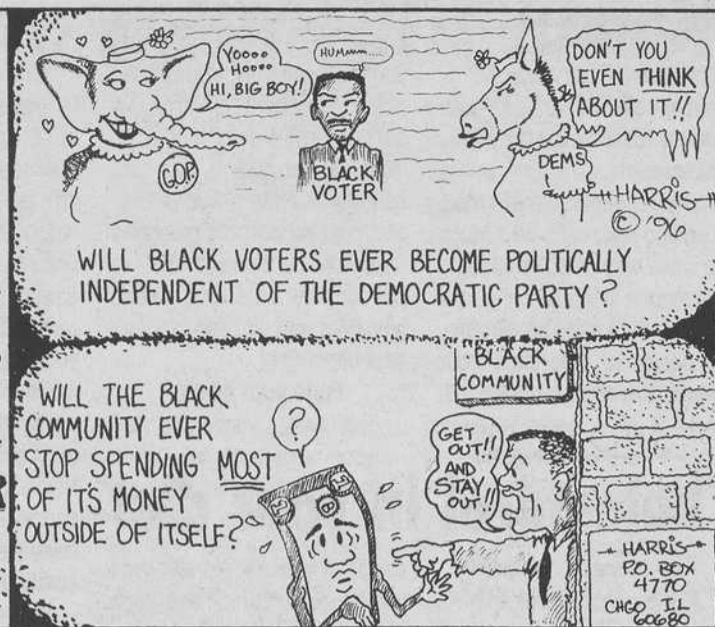 Yoooo
Hoooo
HI, BIG BOY!
HUMmmm....
DON'T YOU
EVEN THINK
ABOUT IT!!
G.O.P.
BLACK
VOTER
DEMS
HARRIS
© '96
WILL BLACK VOTERS EVER BECOME POLITICALLY
INDEPENDENT OF THE DEMOCRATIC PARTY?
WILL THE BLACK
COMMUNITY EVER
STOP SPENDING MOST
OF IT'S MONEY
OUTSIDE OF ITSELF?
?
BLACK
COMMUNITY
GET
OUT!!
AND
STAY
OUT!!
HARRIS
P.O. BOX
4770
CHGO IL
60680